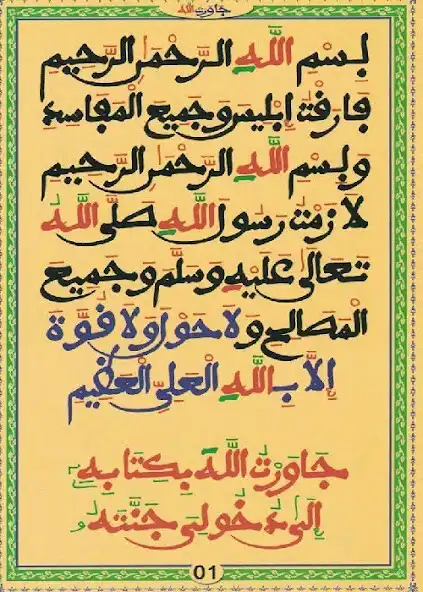 جاورت الله
بسم الله الرحمن الرحيم
فارقت إبليس وجميع المفاسد
وبسم الله الرحمن الرحيم
لازمت رسول الله صلى الله
تعالى عليه وسلم وجميع
المصالح ولا حول ولا قوة
إلا بالله العلي العظيم
جاورت الله بكتابه
إلى دخولي جنته
01